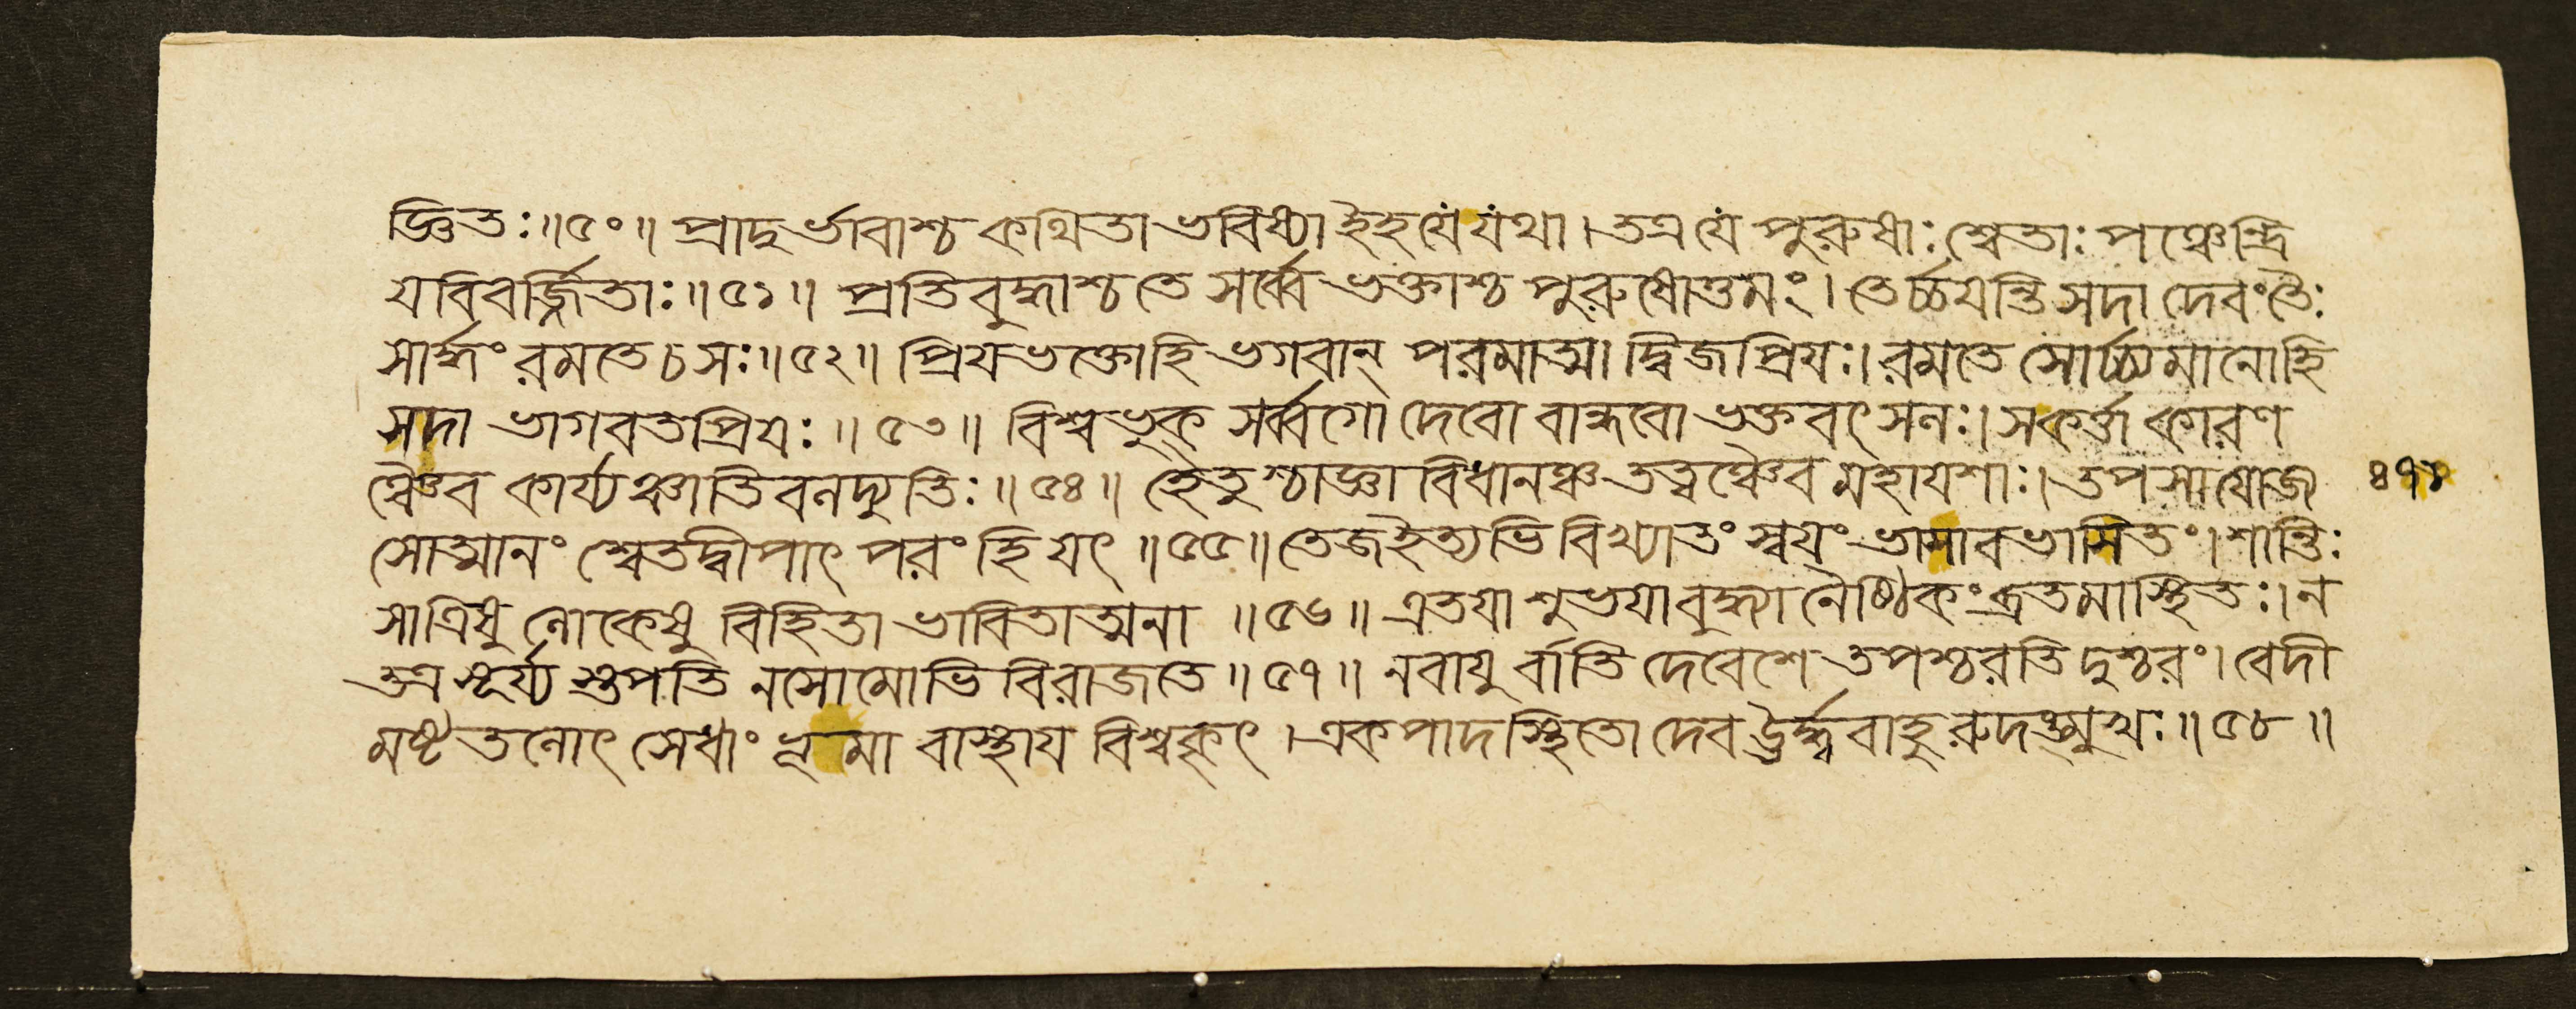 জ্ঞিতঃ॥৫০॥ প্রাদুর্ভাবাশ্চ কথিতা ভবিষ্যা ইহ যে যথা। তত্র যে পুরুষাঃ শ্বেতাঃ পঞ্চেন্দ্রি
যবিবর্জ্জিতাঃ॥৫১॥ প্রতিবুদ্ধাশ্চ তে সর্ব্বে ভক্তাশ্চ পুরুষোত্তমং। তের্চ্চযন্তি সদা দেবং তৈঃ
সার্দ্ধং রমতে চ সঃ॥৫২॥ প্রিযভক্তোহি ভগবান্ পরমাত্মা দ্বিজপ্রিযঃ। রমতে সোর্চ্চ্যমানোহি
সদা ভাগবতপ্রিযঃ॥৫৩॥ বিশ্বভুক্ সর্ব্বগো দেবো বান্ধবো ভক্তবৎসলঃ। সকর্ত্তা কারণ
ঞ্চৈব কার্য্যঞ্চাতিবলদ্যুতিঃ॥৫৪॥ হেতুশ্চাজ্ঞা বিধানঞ্চ তত্ত্বঞ্চৈব মহাযশাঃ। তপসা যোজ্য ৪৭১
সোত্মানং শ্বেতদ্বীপাৎ পরং হি যৎ॥৫৫॥ তেজ ইত্যভিবিখ্যাতং স্বযং ভাসাবভাসিতং। শান্তিঃ
সা ত্রিষু লোকেষু বিহিতা ভাবিতাত্মনা॥৫৬॥ এতযা শুভযা বুদ্ধ্যা নৈষ্ঠিকং ব্রতমাস্থিতঃ। ন
তত্র সূর্য্য স্তপতি ন সোমোভিবিরাজতে॥৫৭॥ ন বাযুর্ব্বাতি দেবেশে তপশ্চরতি দুশ্চরং। বেদী
মষ্টতলোৎসেধাং ভূমাবাস্থায বিশ্বকৃৎ। একপাদস্থিতো দেব ঊর্দ্ধ্ববাহুরুদঙ্মুখঃ॥৫৮॥